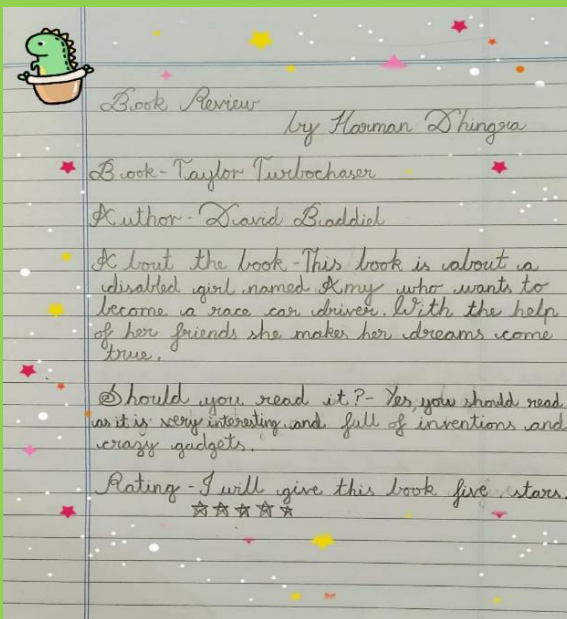 Book Review
by Harman Dhingra
Book - Taylor Turbochaser
Author - David Baddiel
About the book - This book is about a
disabled girl named Amy who wants to
become a race car driver. With the help
of her friends she makes her dreams come
true.
Should you read it? - Yes, you should read
as it is very interesting and full of inventions and
crazy gadgets.
Rating - I will give this book five stars.
☆☆☆☆☆